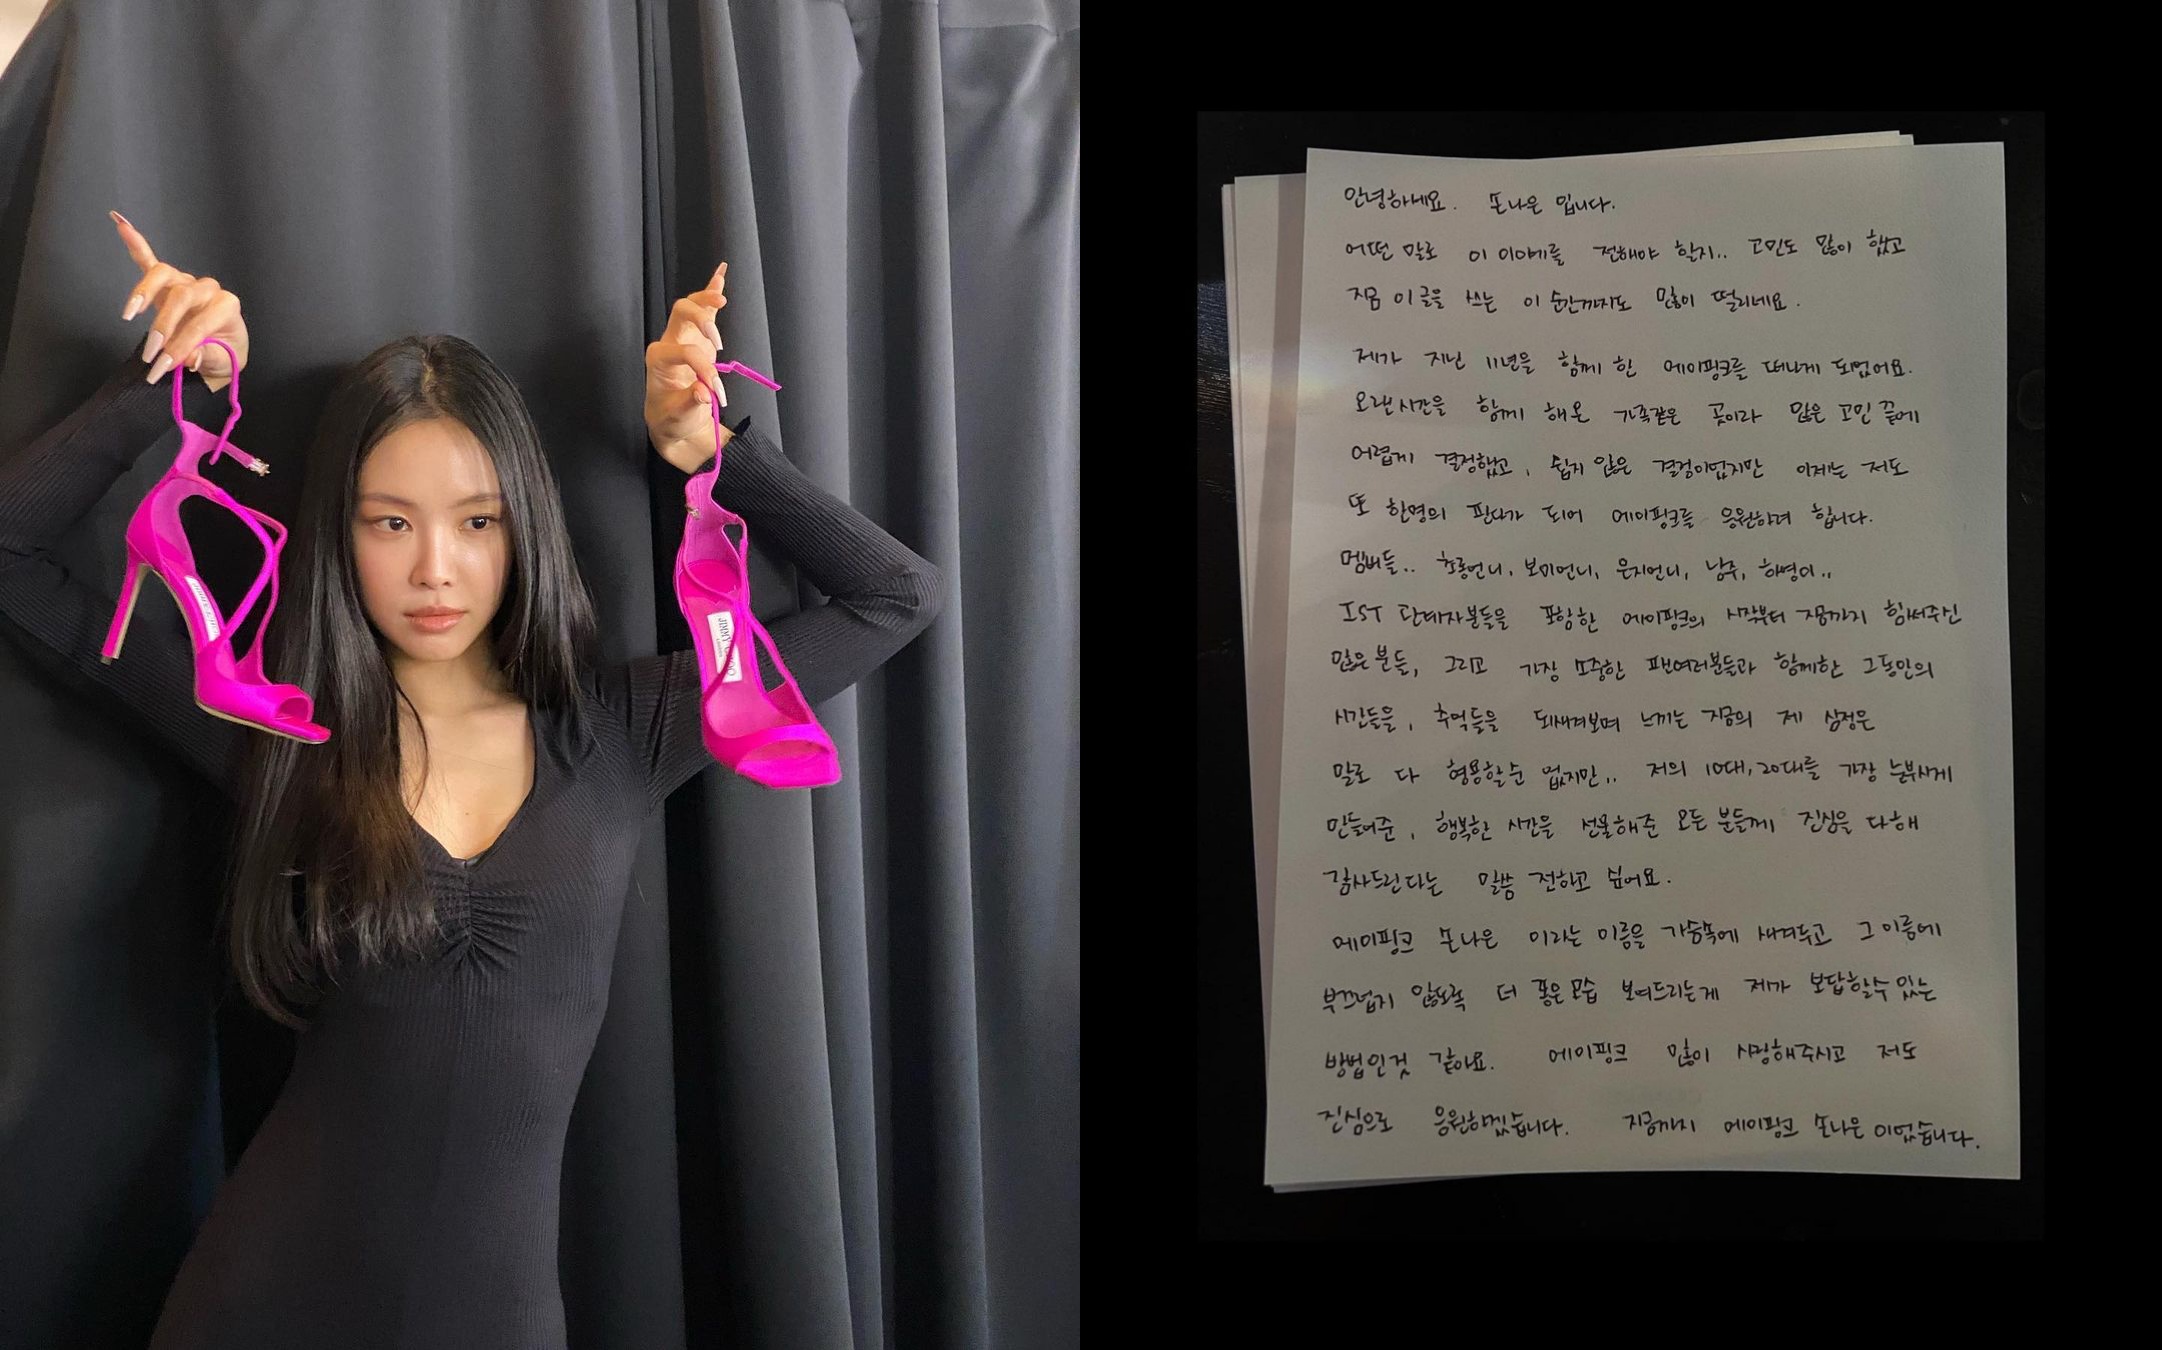 JIMMY CHOO
LONDON
안녕하세요. 손나은 입니다.
어떤 말로 이 이야기를 전해야 할지.. 고민도 많이 했고
지금 이 글을 쓰는 이 순간까지도 많이 떨리네요.
제가 지난 11년을 함께 한 에이핑크를 떠나게 되었어요.
오랜시간을 함께 해온 가족같은 곳이라 많은 고민 끝에
어렵게 결정했고, 쉽지 않은 결정이었지만 이제는 저도
또 한명의 판다가 되어 에이핑크를 응원하려 합니다.
멤버들.. 초롱언니, 보미언니, 은지언니, 남주, 하영이..
IST 관계자분들을 포함한 에이핑크의 시작부터 지금까지 힘써주신
많은 분들, 그리고 가장 소중한 팬여러분들과 함께한 그동안의
시간들을, 추억들을 되새겨보며 느끼는 지금의 제 심정은
말로 다 형용할순 없지만.. 저의 10대, 20대를 가장 눈부시게
만들어준, 행복한 시간을 선물해준 모든 분들께 진심을 다해
감사드린다는 말씀 전하고 싶어요.
에이핑크 손나은 이라는 이름을 가슴속에 새겨두고 그 이름에
부끄럽지 않도록 더 좋은 모습 보여드리는게 제가 보답할수 있는
방법인것 같아요. 에이핑크 많이 사랑해주시고 저도
진심으로 응원하겠습니다. 지금까지 에이핑크 손나은 이었습니다.